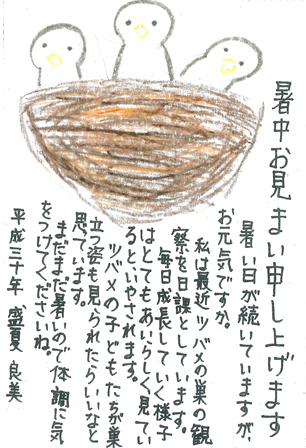 暑中お見まい申し上げます
暑い日が続いていますが、
お元気ですか。
私は最近ツバメの巣の観
察を日課としています。
毎日成長していく様子
はとてもあいらしく見てい
るといやされます。
ツバメの子どもたちが巣
立つ姿も見られたらいいなと
思っています。
まだまだ暑いので体調に気
をつけてくださいね。
平成三十年 盛夏 良美